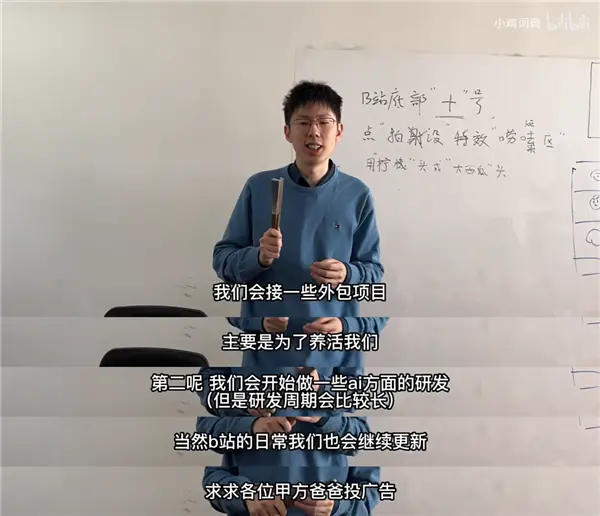 小鸡词典 bilibili
B站底部"十"号
点"拍摄没"特效"唠嗑区"
用柠檬"头 或"大西瓜"头
我们会接一些外包项目
主要是为了养活我们
第二呢 我们会开始做一些ai方面的研发
(但是研发周期会比较长)
当然b站的日常我们也会继续更新
求求各位甲方爸爸投广告